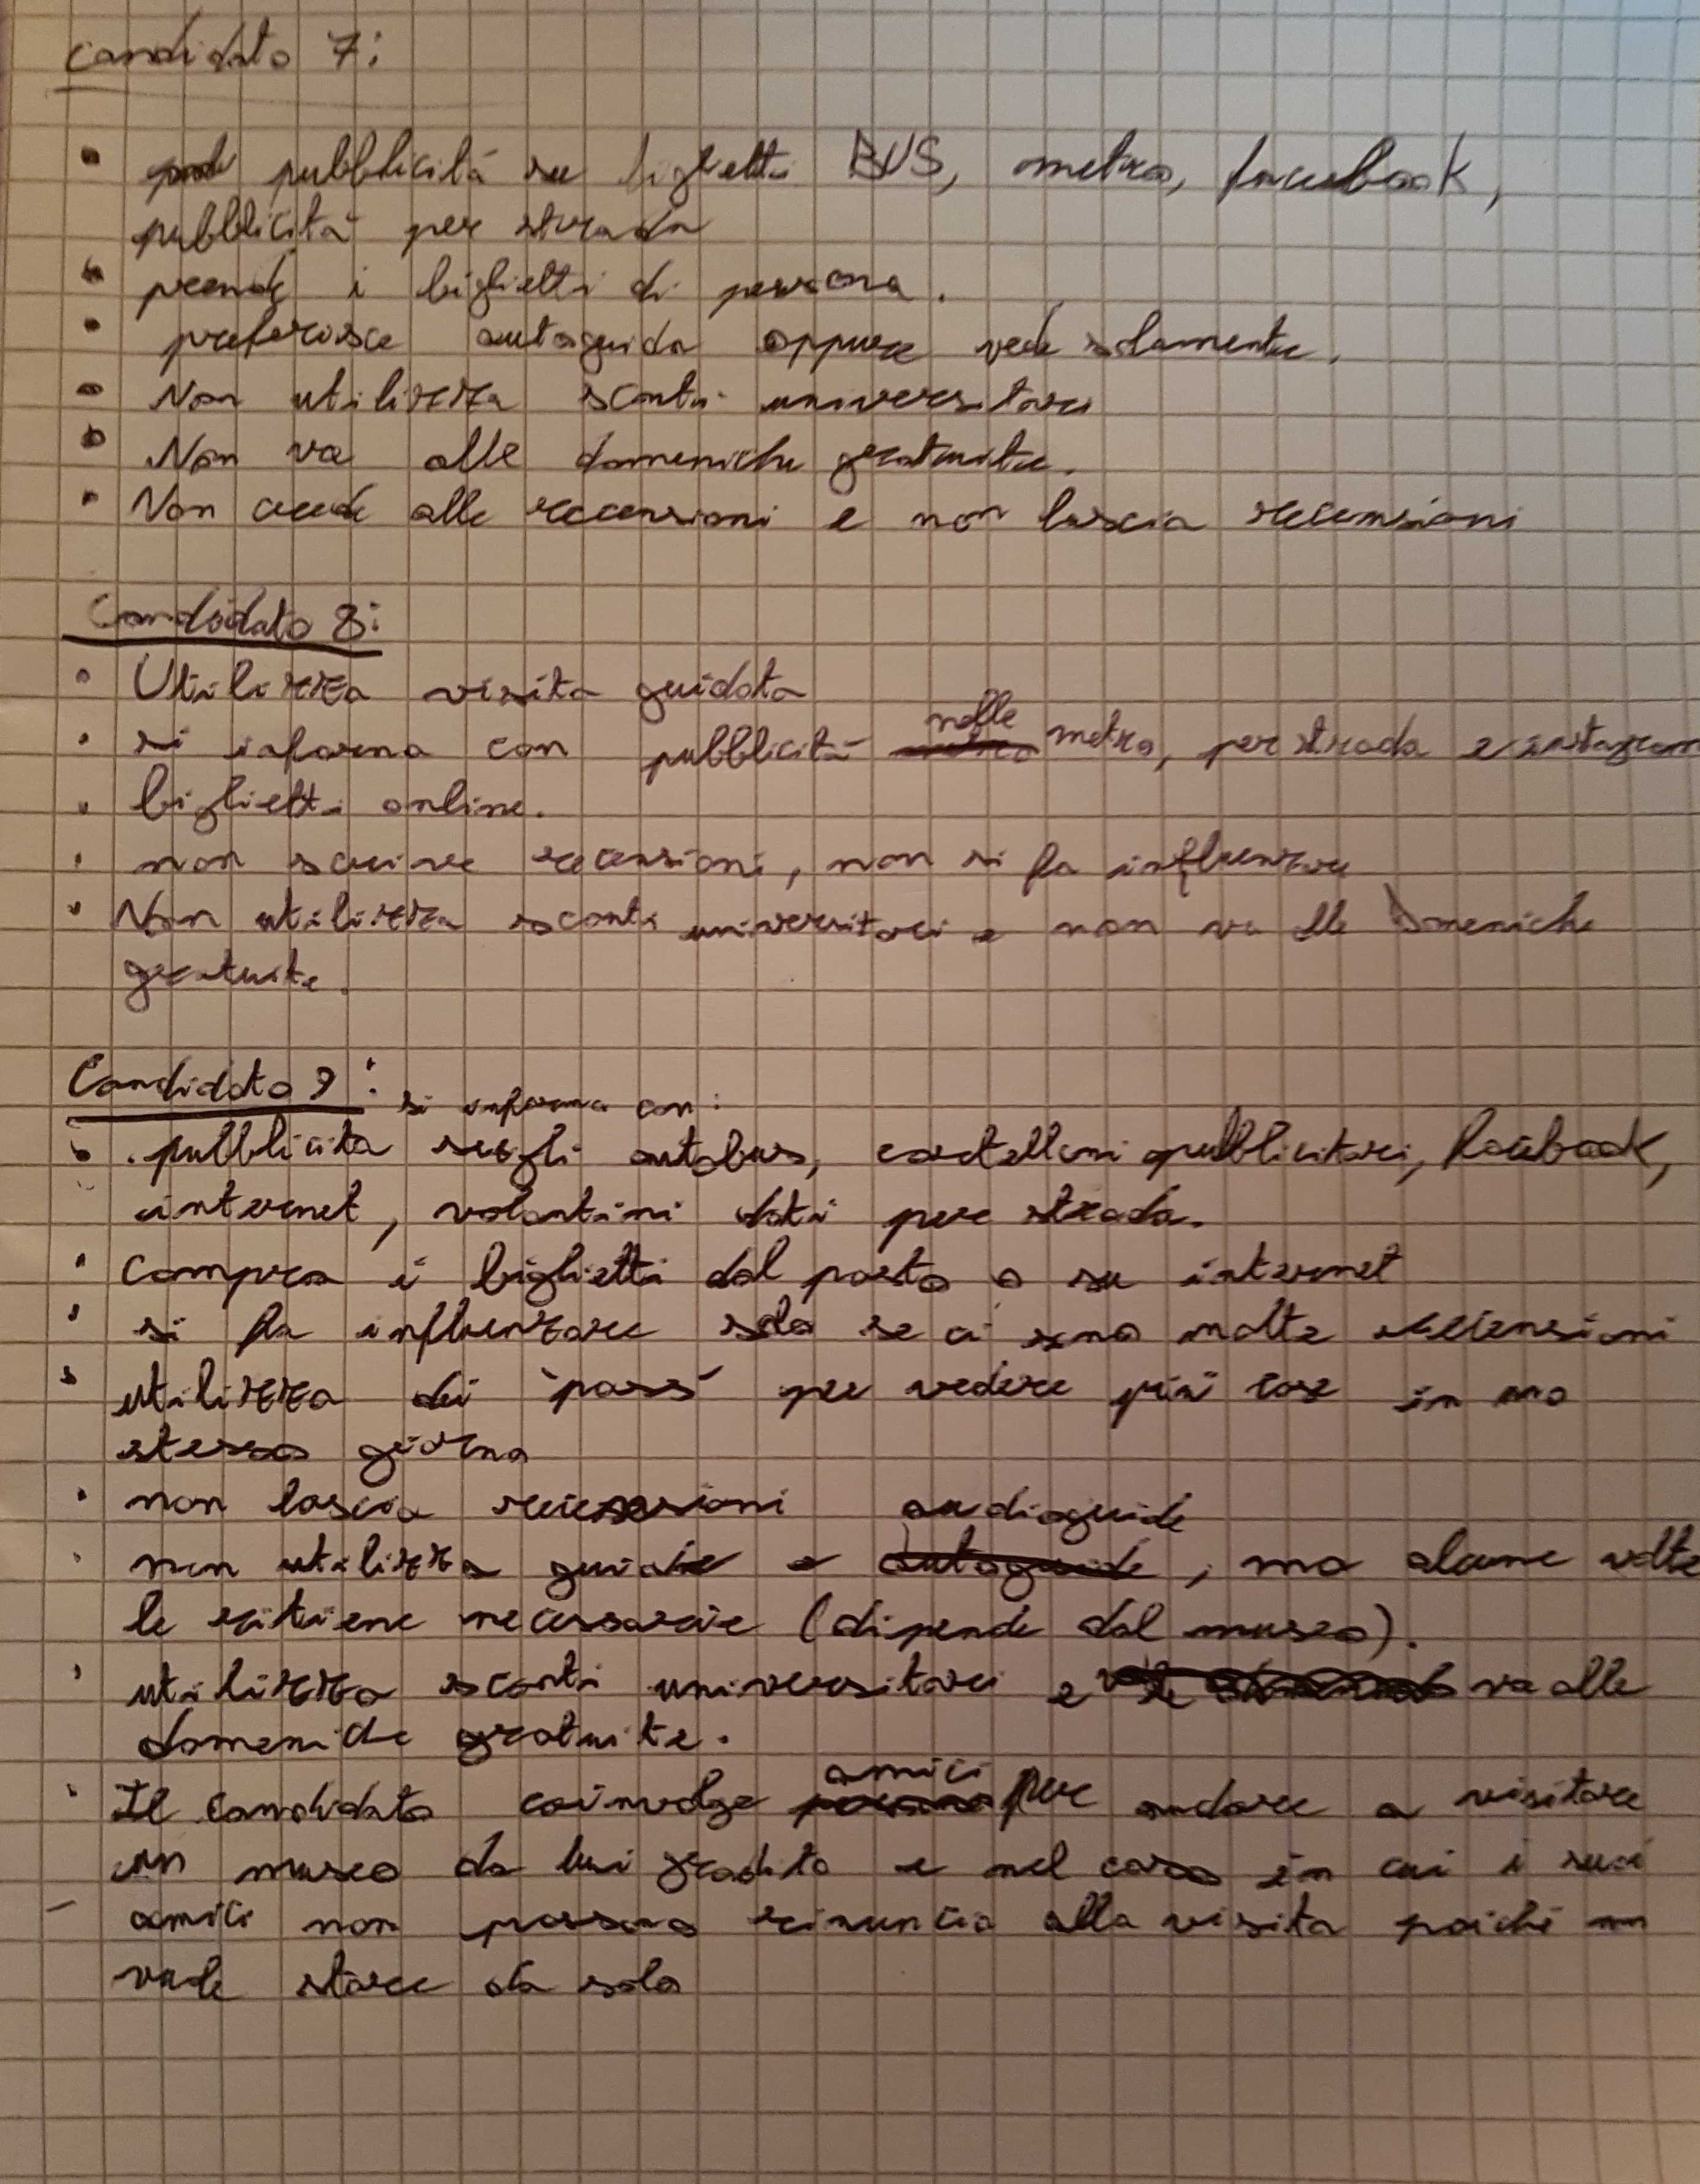 Candidato 7:
pubblicità su biglietti BUS, metro, facebook,
pubblicità per strada
prende i biglietti di persona.
preferisce autoguida oppure vede solamente.
Non utilizza sconti universitari
Non va alle domeniche gratuite.
Non crede alle recensioni e non lascia recensioni
Candidato 8:
Utilizza visita guidata
nelle
si informa con pubblicità metro, per strada e instagram
biglietti online.
non scrive recensioni, non si fa influenzare
Non utilizza sconti universitari e non va alle Domeniche
gratuite.
Candidato 9:
si informa con:
pubblicita sugli autobus, cartelloni pubblicitari, facebook,
internet, volantini dati per strada.
Compra i biglietti dal posto o su internet
si fa influenzare solo se ci sono molte recensioni
utilizza dei "pass" per vedere più cose in uno
stesso giorno
non lascia recensioni
audioguide
non utilizza guide e , ma alcune volte
le ritiene necessarie (dipende dal museo).
utilizza sconti universitari e va alle
domeniche gratuite.
amici
Il candidato coinvolge per andare a visitare
un museo da lui gradito e nel caso in cui i suoi
amici non possono rinuncia alla visita poichè non
vuole stare da solo